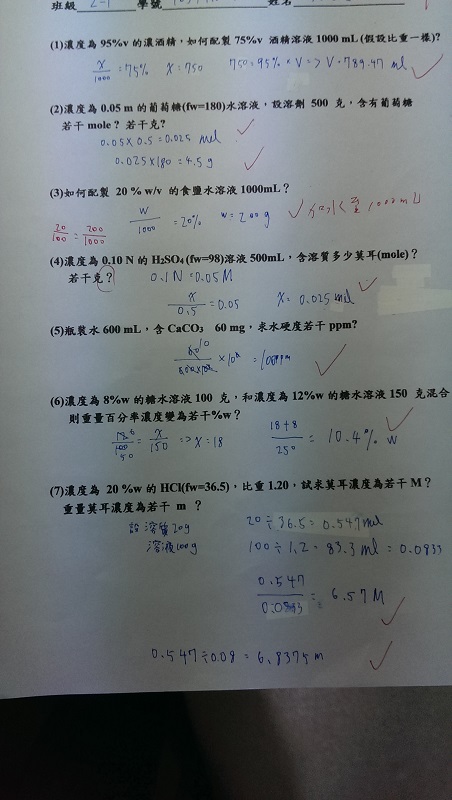 班級 2-1 學號 姓名
(1)濃度為95%v的濃酒精，如何配製75%v 酒精溶液1000 mL(假設比重一樣)?
x/1000 = 75% x = 750 750 = 95% × V => V = 789.47 ml
(2)濃度為0.05 m的葡萄糖(fw=180)水溶液，設溶劑 500 克，含有葡萄糖
若干mole？若干克?
0.05 × 0.5 = 0.025 mol
0.025 × 180 = 4.5 g
(3)如何配製 20 % w/v 的食鹽水溶液1000mL？
20/100 = 200/1000 W/1000 = 20% w = 200 g 加水至1000mL
(4)濃度為0.10 N的H₂SO₄(fw=98)溶液500mL，含溶質多少莫耳(mole)？
若干克？ 0.1 N = 0.05 M
x/0.5 = 0.05 x = 0.025 mol
(5)瓶裝水600 mL，含CaCO₃ 60 mg，求水硬度若干ppm?
= 100ppm
(6)濃度為8%w的糖水溶液100 克，和濃度為12%w的糖水溶液150 克混合
則重量百分率濃度變為若干%w？
= x/150 => x = 18 18+8/250 = 10.4% w
(7)濃度為 20 %w的HCl(fw=36.5)，比重1.20，試求莫耳濃度為若干M？
重量莫耳濃度為若干 m ？
設 溶質20g 20 ÷ 36.5 = 0.547 mol
溶液100g 100 ÷ 1.2 = 83.3 ml = 0.0833
0.547/0.0833 = 6.57 M
0.547 ÷ 0.08 = 6.8375 m